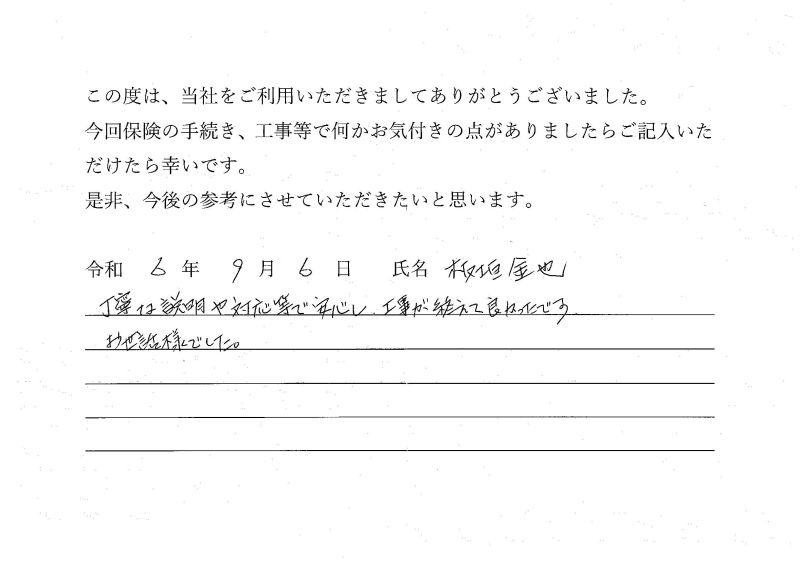 この度は、当社をご利用いただきましてありがとうございました。
今回保険の手続き、工事等で何かお気付きの点がありましたらご記入いた
だけたら幸いです。
是非、今後の参考にさせていただきたいと思います。
令和 6 年 9 月 6 日 氏名 板垣金也
丁寧な説明や対応等で安心し、工事が終えて良かったです
お世話様でした。